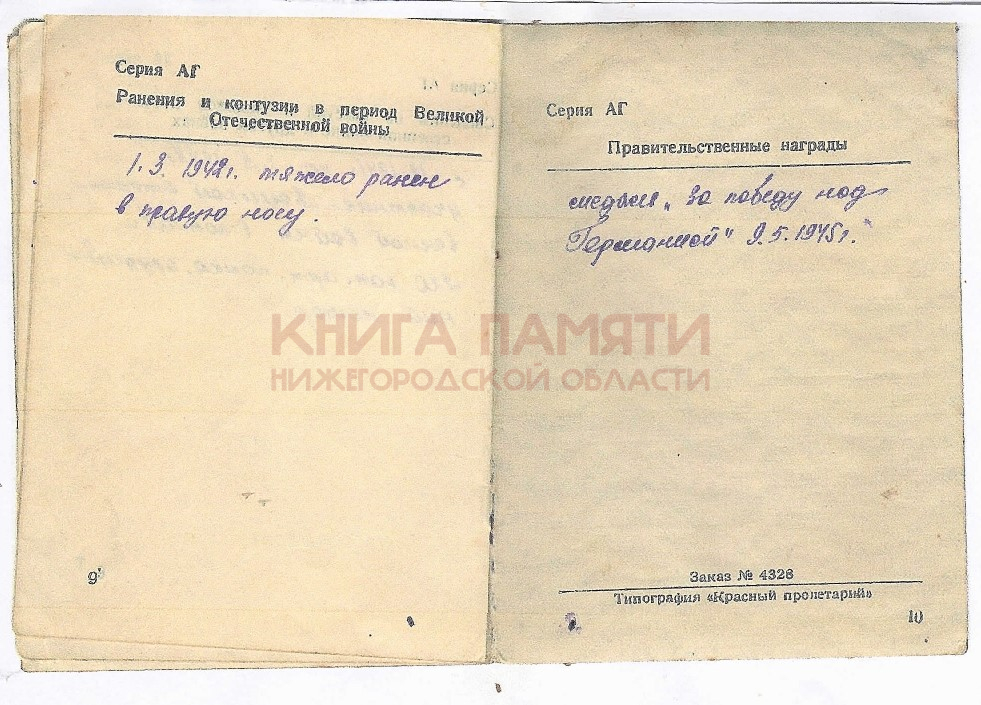 Серия АГ
Ранения и контузии в период Великой
Отечественной войны
1.3.1942г. тяжело ранен
в правую ногу.
9
Серия АГ
Правительственные награды
медаль „За победу над
Германией" 9.5.1945г.
КНИГА ПАМЯТИ
НИЖЕГОРОДСКОЙ ОБЛАСТИ
Заказ № 4326
Типография «Красный пролетарий»
10